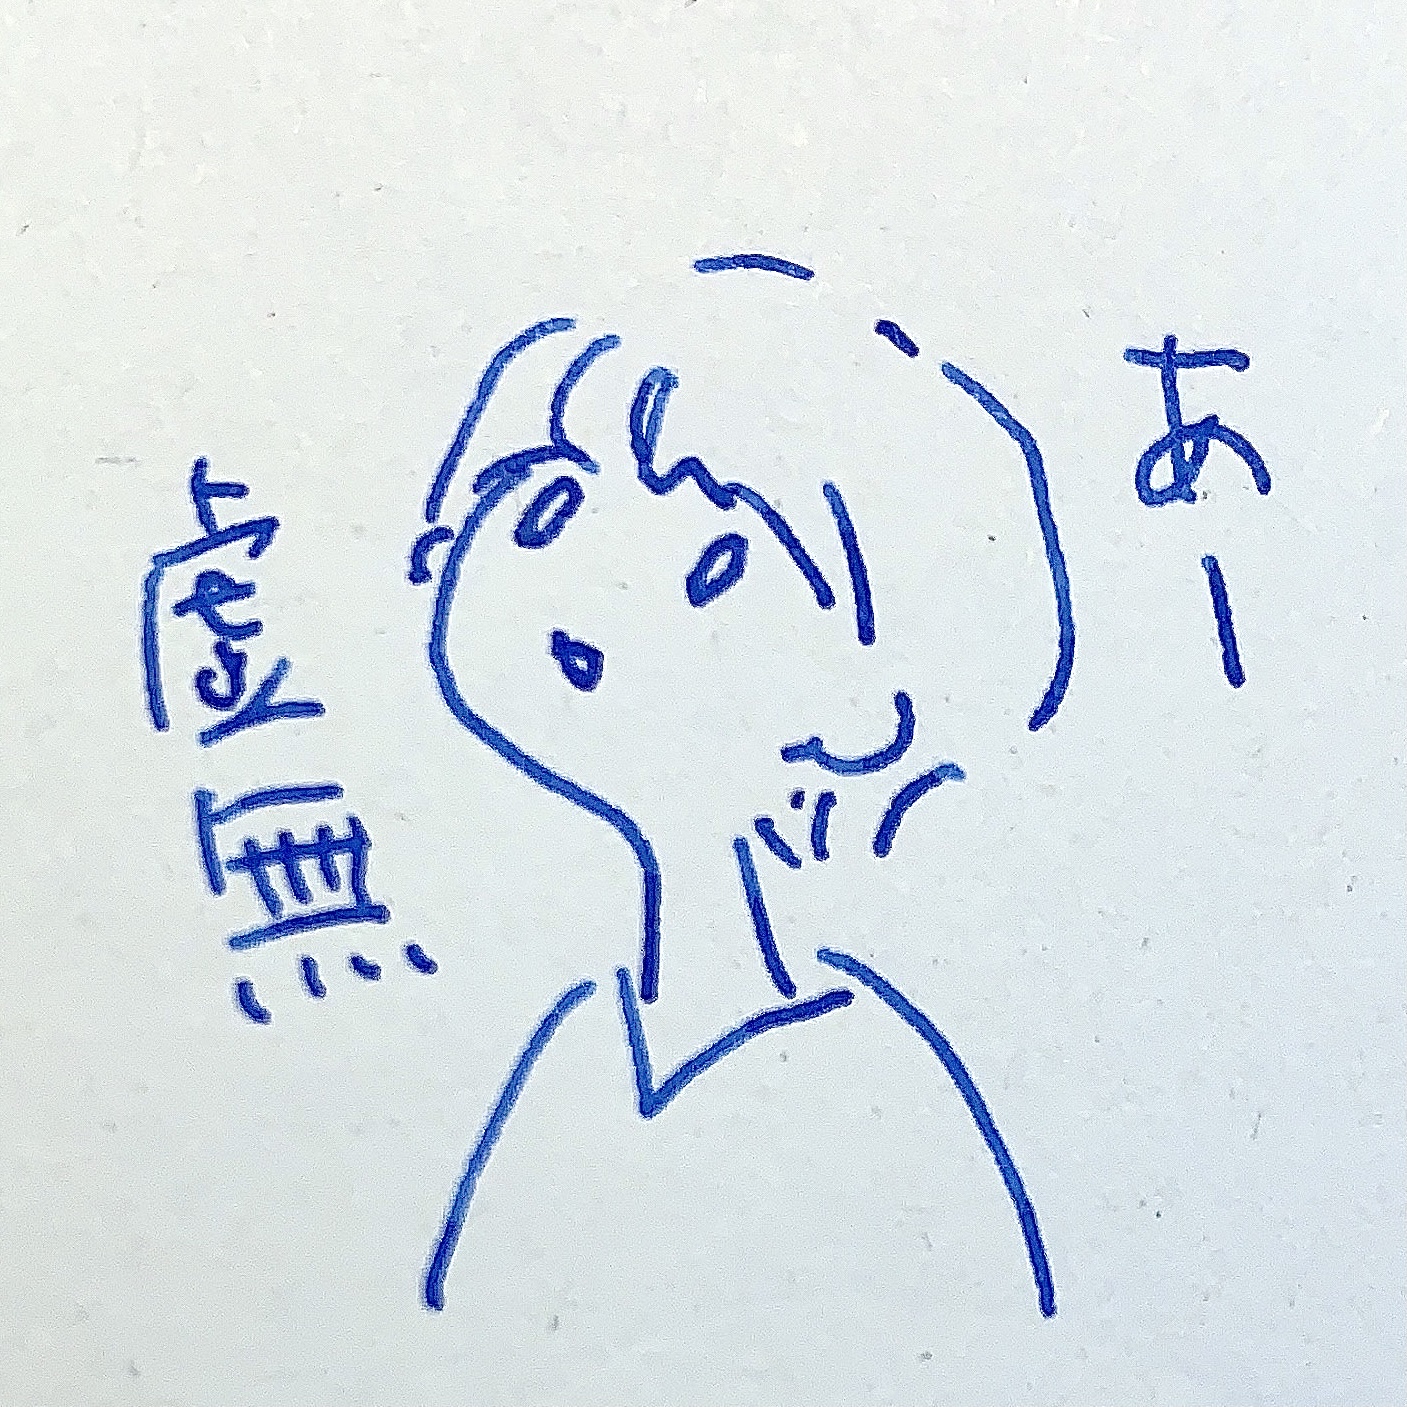 あー
虚無